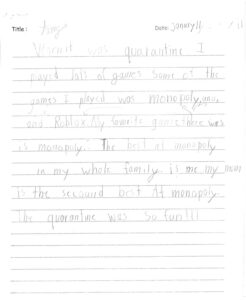 Title: Date: January 11
was quarantine I
played lots of games some of the
games I played was monopoly, uno,
and Roblox. My favorite game there was
is monopoly. The best at monopoly
in my whole family is me my mom
is the secound best At monopoly
The quarantine was so fun!!!